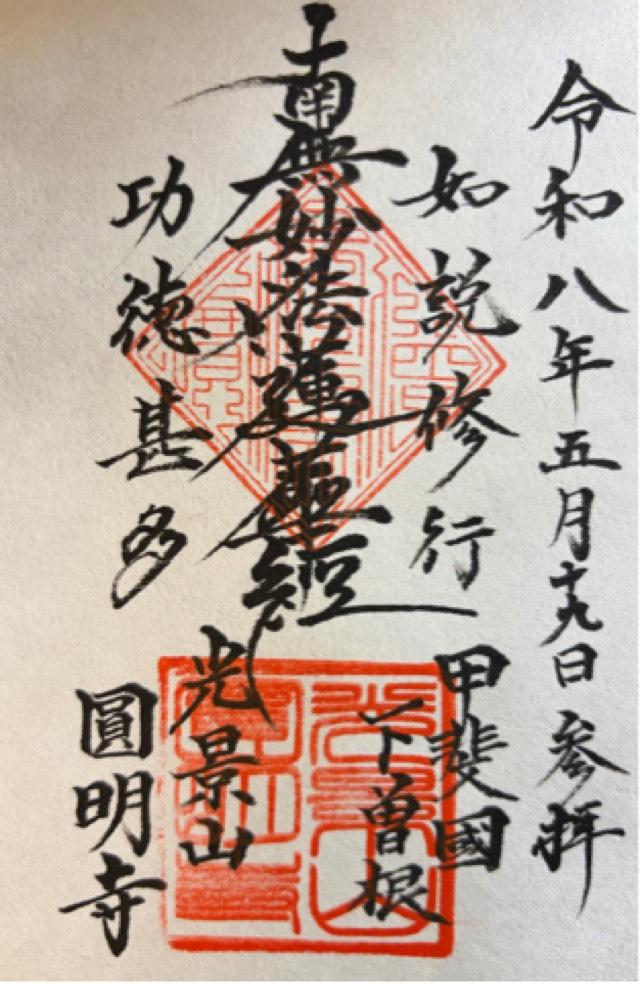 令和八年五月十九日参拝
如説修行
甲斐國
下曽根
南無妙法蓮華経
功徳甚多
光景山
圓明寺